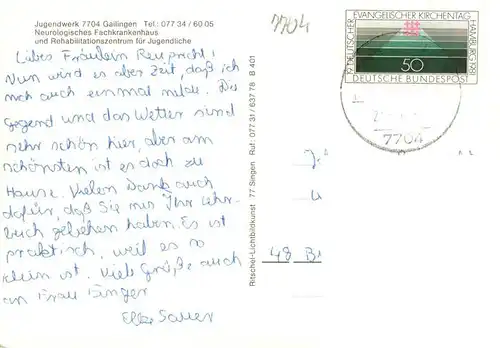 Jugendwerk 7704 Gailingen Tel.: 077 34 / 60 05
Neurologisches Fachkrankenhaus
und Rehabilitationszentrum für Jugendliche
Liebes Fräulein
Nun wird es aber Zeit, daß ich
mich auch einmal melde. Die
Gegend und das Wetter sind
sehr schön hier, aber am
schönsten ist es doch zu
Hause. Vielen Dank auch
dafür, daß Sie mir Ihr Lehr-
buch geliehen haben. Es ist
praktisch, weil es so
klein ist. Viele Grüße auch
an Frau
Sauer
Ritschel-Lichtbildkunst 77 Singen Ruf: 077 31 / 637 78 B 401
7704
19. DEUTSCHER EVANGELISCHER KIRCHENTAG HAMBURG 1981
50
DEUTSCHE BUNDESPOST
7704
48